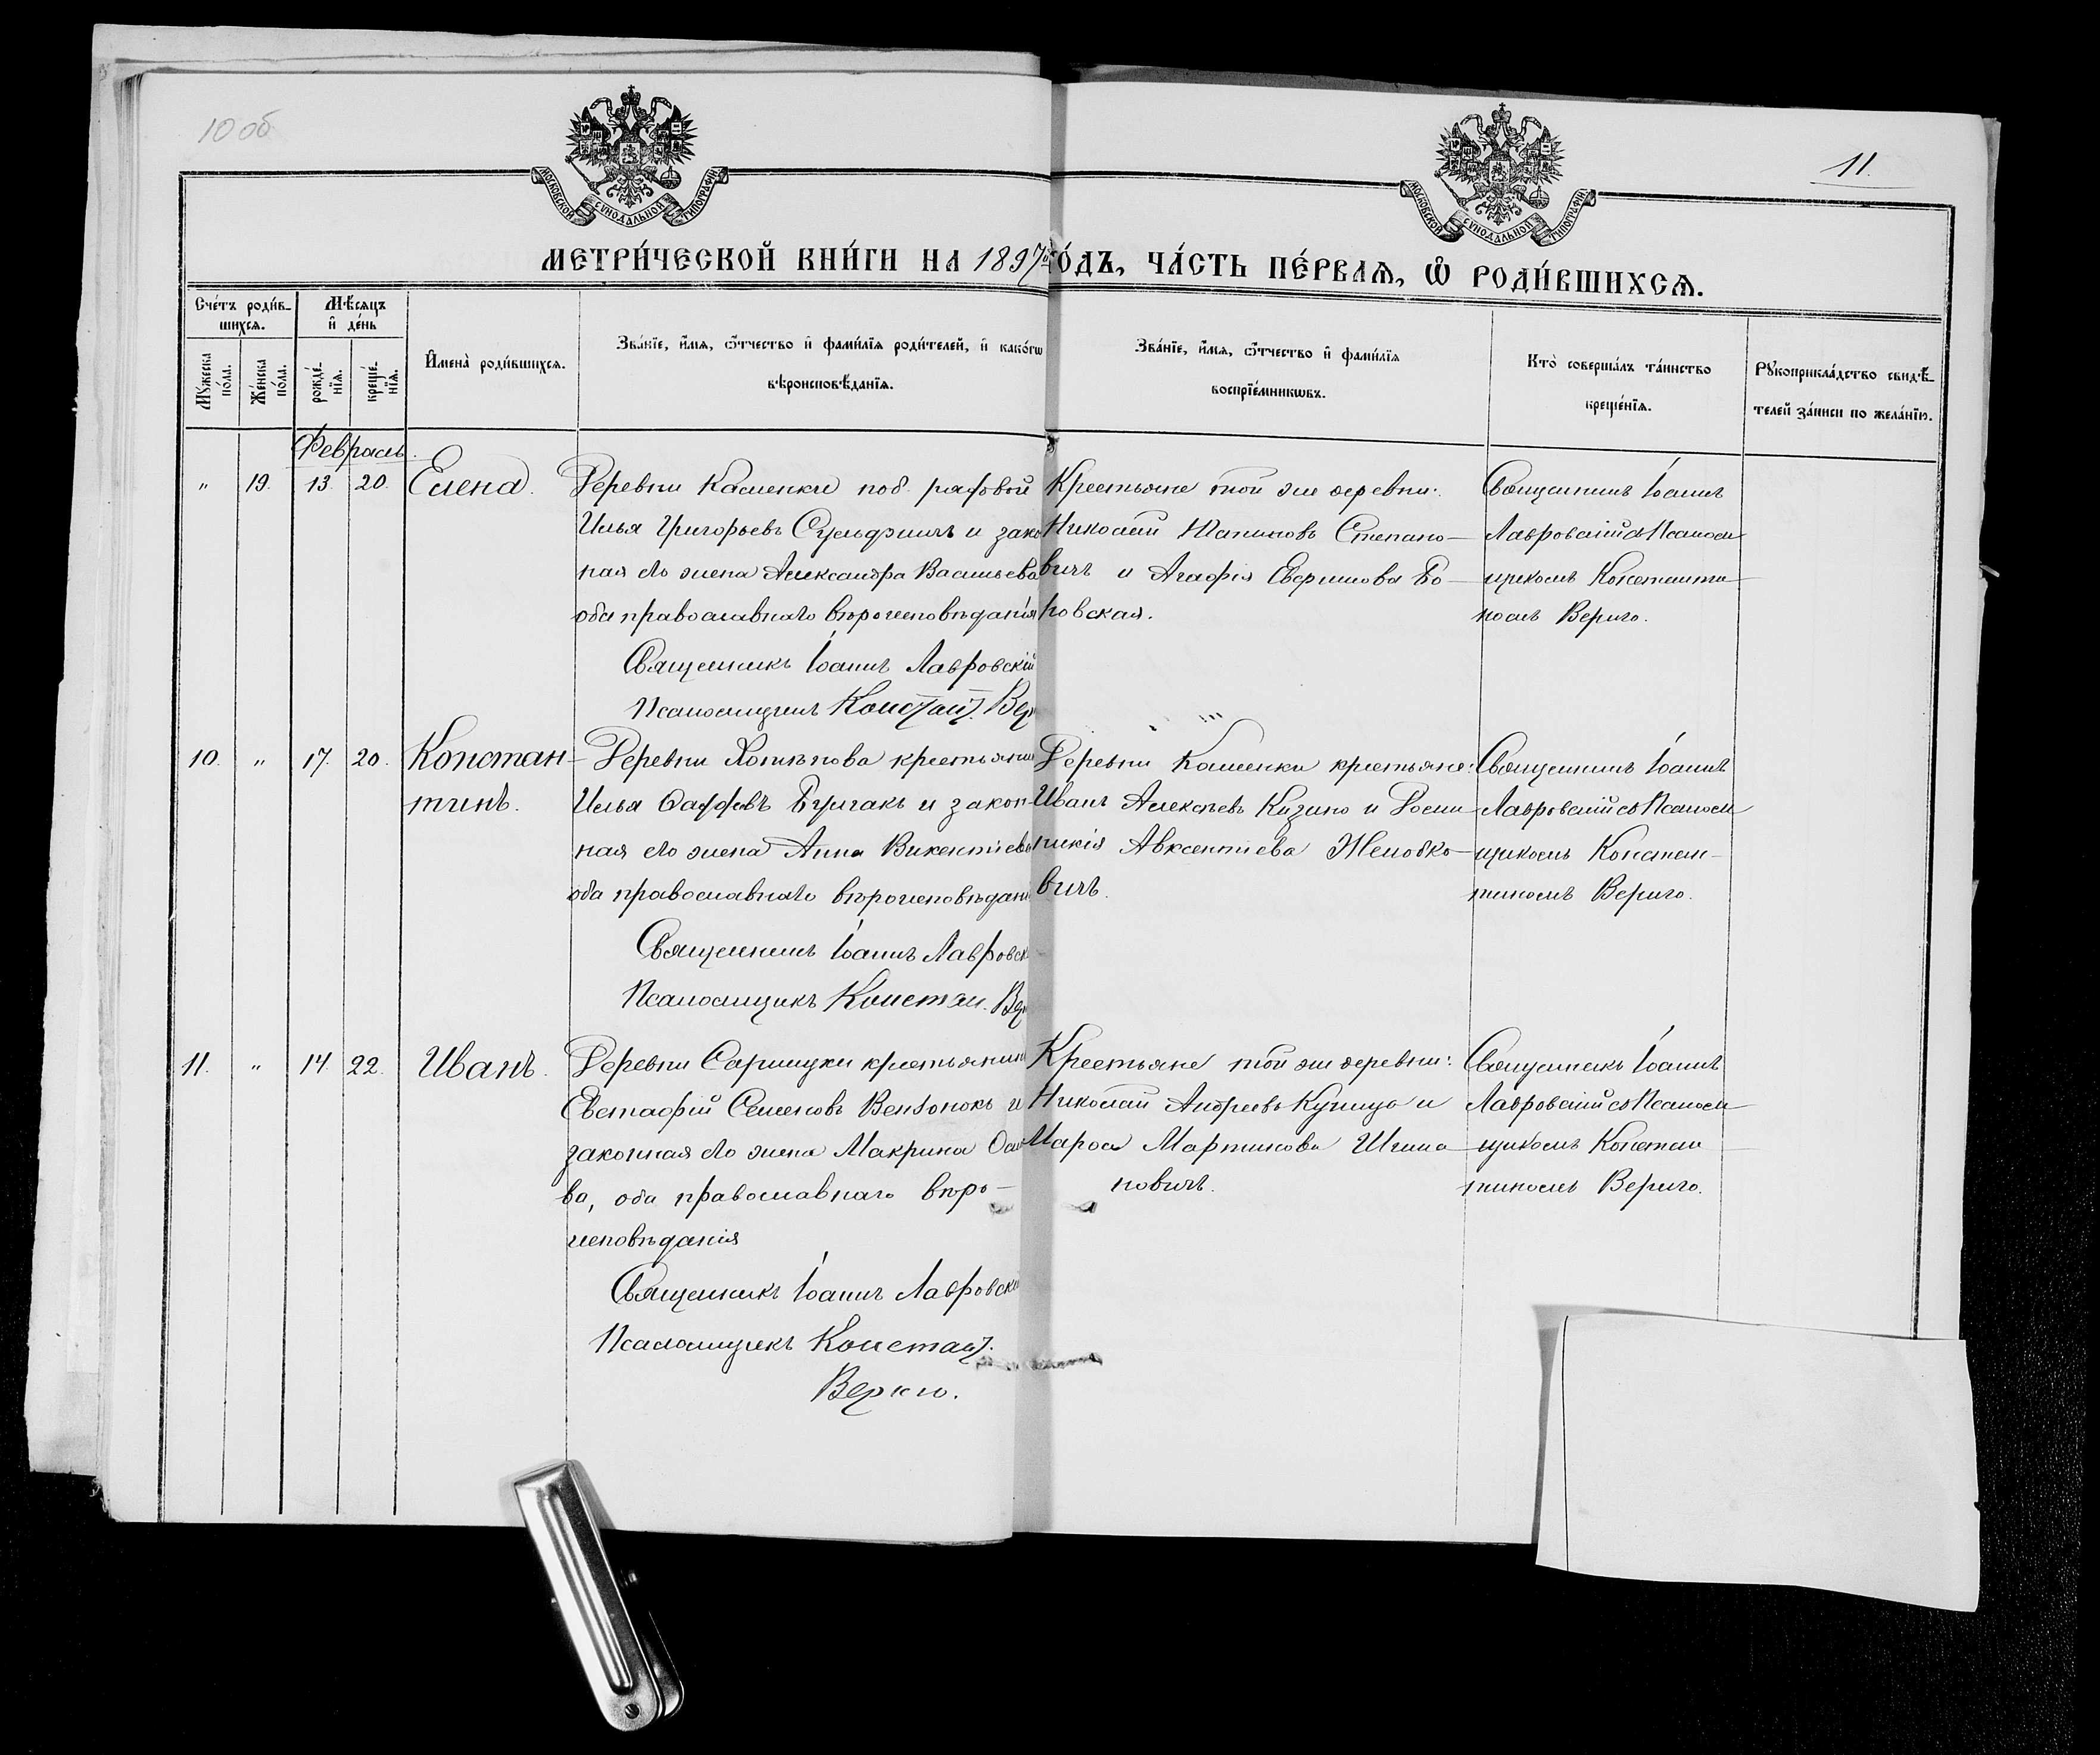 10 об
11.
МОСКОВСКОЙ СѴНОДАЛЬНОЙ ТИПОГРАФІИ
МОСКОВСКОЙ СѴНОДАЛЬНОЙ ТИПОГРАФІИ
МЕТРИ́ЧЕСКОЙ КНИ́ГИ НА 1897й ГО́ДЪ, ЧА́СТЬ ПЕ́РВАѦ, Ѽ РОДИ́ВШИХСѦ.
Сче́тъ роди́в-
шихсѧ.
Мѣ́сѧцъ
и҆ де́нь
Мꙋ́жеска
по́ла.
Же́нска
по́ла.
рожде́-
нїѧ.
креще́-
нїѧ.
И҆мена̀ роди́вшихсѧ.
Зва́нїе, и҆́мѧ, ѻ҆́тчество и҆ фами́лїѧ роди́телей, и҆ како́гѡ
вѣроисповѣ́данїѧ.
Зва́нїе, и҆́мѧ, ѻ҆́тчество и҆ фами́лїѧ
воспрїе́мникѡвъ.
Кто̀ соверша́лъ та́инство
креще́нїѧ.
Рꙋкоприкла́дство свидѣ́-
телей за́писи по жела́нїю.
Февраль.
" 19. 13. 20. Елена.
Деревни Каменки рядовой
Илья Григорьевъ и закон
ная его жена Александра Васильева
оба православнаго вѣроисповѣданія
Священникъ Іоаннъ Лавровскій
Псаломщикъ Констант. Вер
Крестьяне той же деревни:
Николай Степано-
вичъ и Агафія Бо-
ровская.
Священникъ Іоаннъ
Лавровскій съ Псаломщ
щикомъ Константи-
номъ Вериго.
10. " 17. 20. Констан-
тинъ.
Деревни крестьянин
Илья Бурчакъ и закон-
ная его жена Анна Викентіева
оба православнаго вѣроисповѣдан
Священникъ Іоаннъ Лавровск
Псаломщикъ Констан. Вер
Деревни Каменки крестьяне:
Иванъ Алексѣевъ Кизино и Доми-
никія Авксентіева Жилобко-
вичъ.
Священникъ Іоаннъ
Лавровскій съ Псалом
щикомъ Констан-
тиномъ Вериго.
11. " 14. 22. Иванъ.
Деревни крестьянинъ
Евстафій Семеновъ и
законная его жена Макрина
ва, оба православнаго вѣро-
исповѣданія
Священникъ Іоаннъ Лавровскі
Псаломщикъ Констант.
Вериго.
Крестьяне той же деревни:
Николай Андреевъ Куница и
Марѳа Мартинова
новичъ.
Священникъ Іоаннъ
Лавровскій съ Псалом-
щикомъ Констан-
тиномъ Вериго.